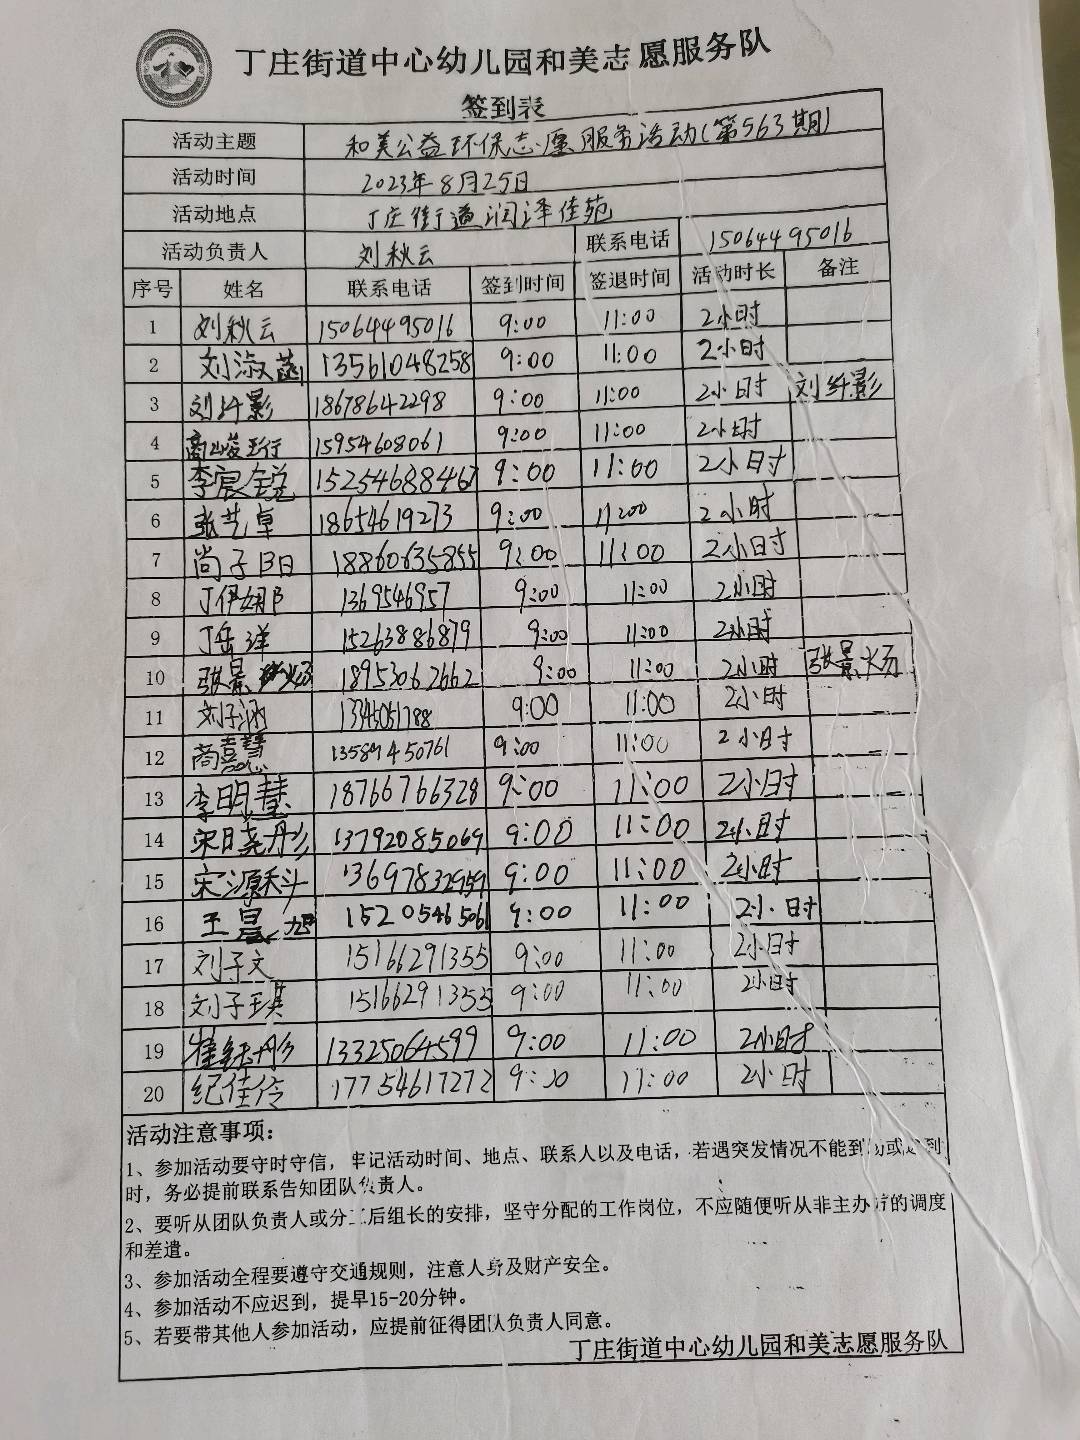 丁庄街道中心幼儿园和美志愿服务队
签到表
活动主题 和美公益环保志愿服务活动(第563期)
活动时间 2023年8月25日
活动地点 丁庄街道润泽佳苑
活动负责人 刘秋云 联系电话 15064495016
序号 姓名 联系电话 签到时间 签退时间 活动时长 备注
1 刘秋云 15064495016 9:00 11:00 2小时
2 刘淑菡 13561048258 9:00 11:00 2小时
3 刘纤影 18678642298 9:00 11:00 2小时 刘纤影
4 商峻珩 15954608061 9:00 11:00 2小时
5 李宸锐 15254688467 9:00 11:00 2小时
6 张艺卓 18654619273 9:00 11:00 2小时
7 尚子日 18860635855 9:00 11:00 2小时
8 丁伊 1369546957 9:00 11:00 2小时
9 丁岳洋 15263886879 9:00 11:00 2小时
10 张景炀 18953062662 9:00 11:00 2小时 张景炀
11 刘子涵 13345051788 9:00 11:00 2小时
12 商嘉慧 13589450761 9:00 11:00 2小时
13 李明慧 18766766328 9:00 11:00 2小时
14 宋晓彤 13792085069 9:00 11:00 2小时
15 宋源科 13697832959 9:00 11:00 2小时
16 王昱旭 15205465061 9:00 11:00 2小时
17 刘子文 15166291355 9:00 11:00 2小时
18 刘子琪 15166291355 9:00 11:00 2小时
19 崔钰彤 13325064599 9:00 11:00 2小时
20 纪佳伶 17754617272 9:00 11:00 2小时
活动注意事项：
1、参加活动要守时守信，牢记活动时间、地点、联系人以及电话，若遇突发情况不能到 或 到
时，务必提前联系告知团队负责人。
2、要听从团队负责人或分工后组长的安排，坚守分配的工作岗位，不应随便听从非主办方的调度
和差遣。
3、参加活动全程要遵守交通规则，注意人身及财产安全。
4、参加活动不应迟到，提早15-20分钟。
5、若要带其他人参加活动，应提前征得团队负责人同意。
丁庄街道中心幼儿园和美志愿服务队